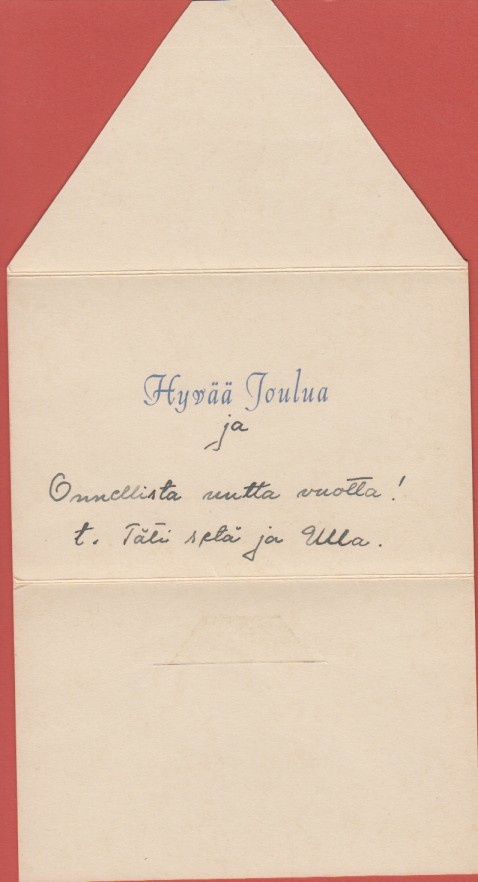 Hyvää Joulua
ja
Onnellista uutta vuotta!
t. Täti setä ja Ulla.